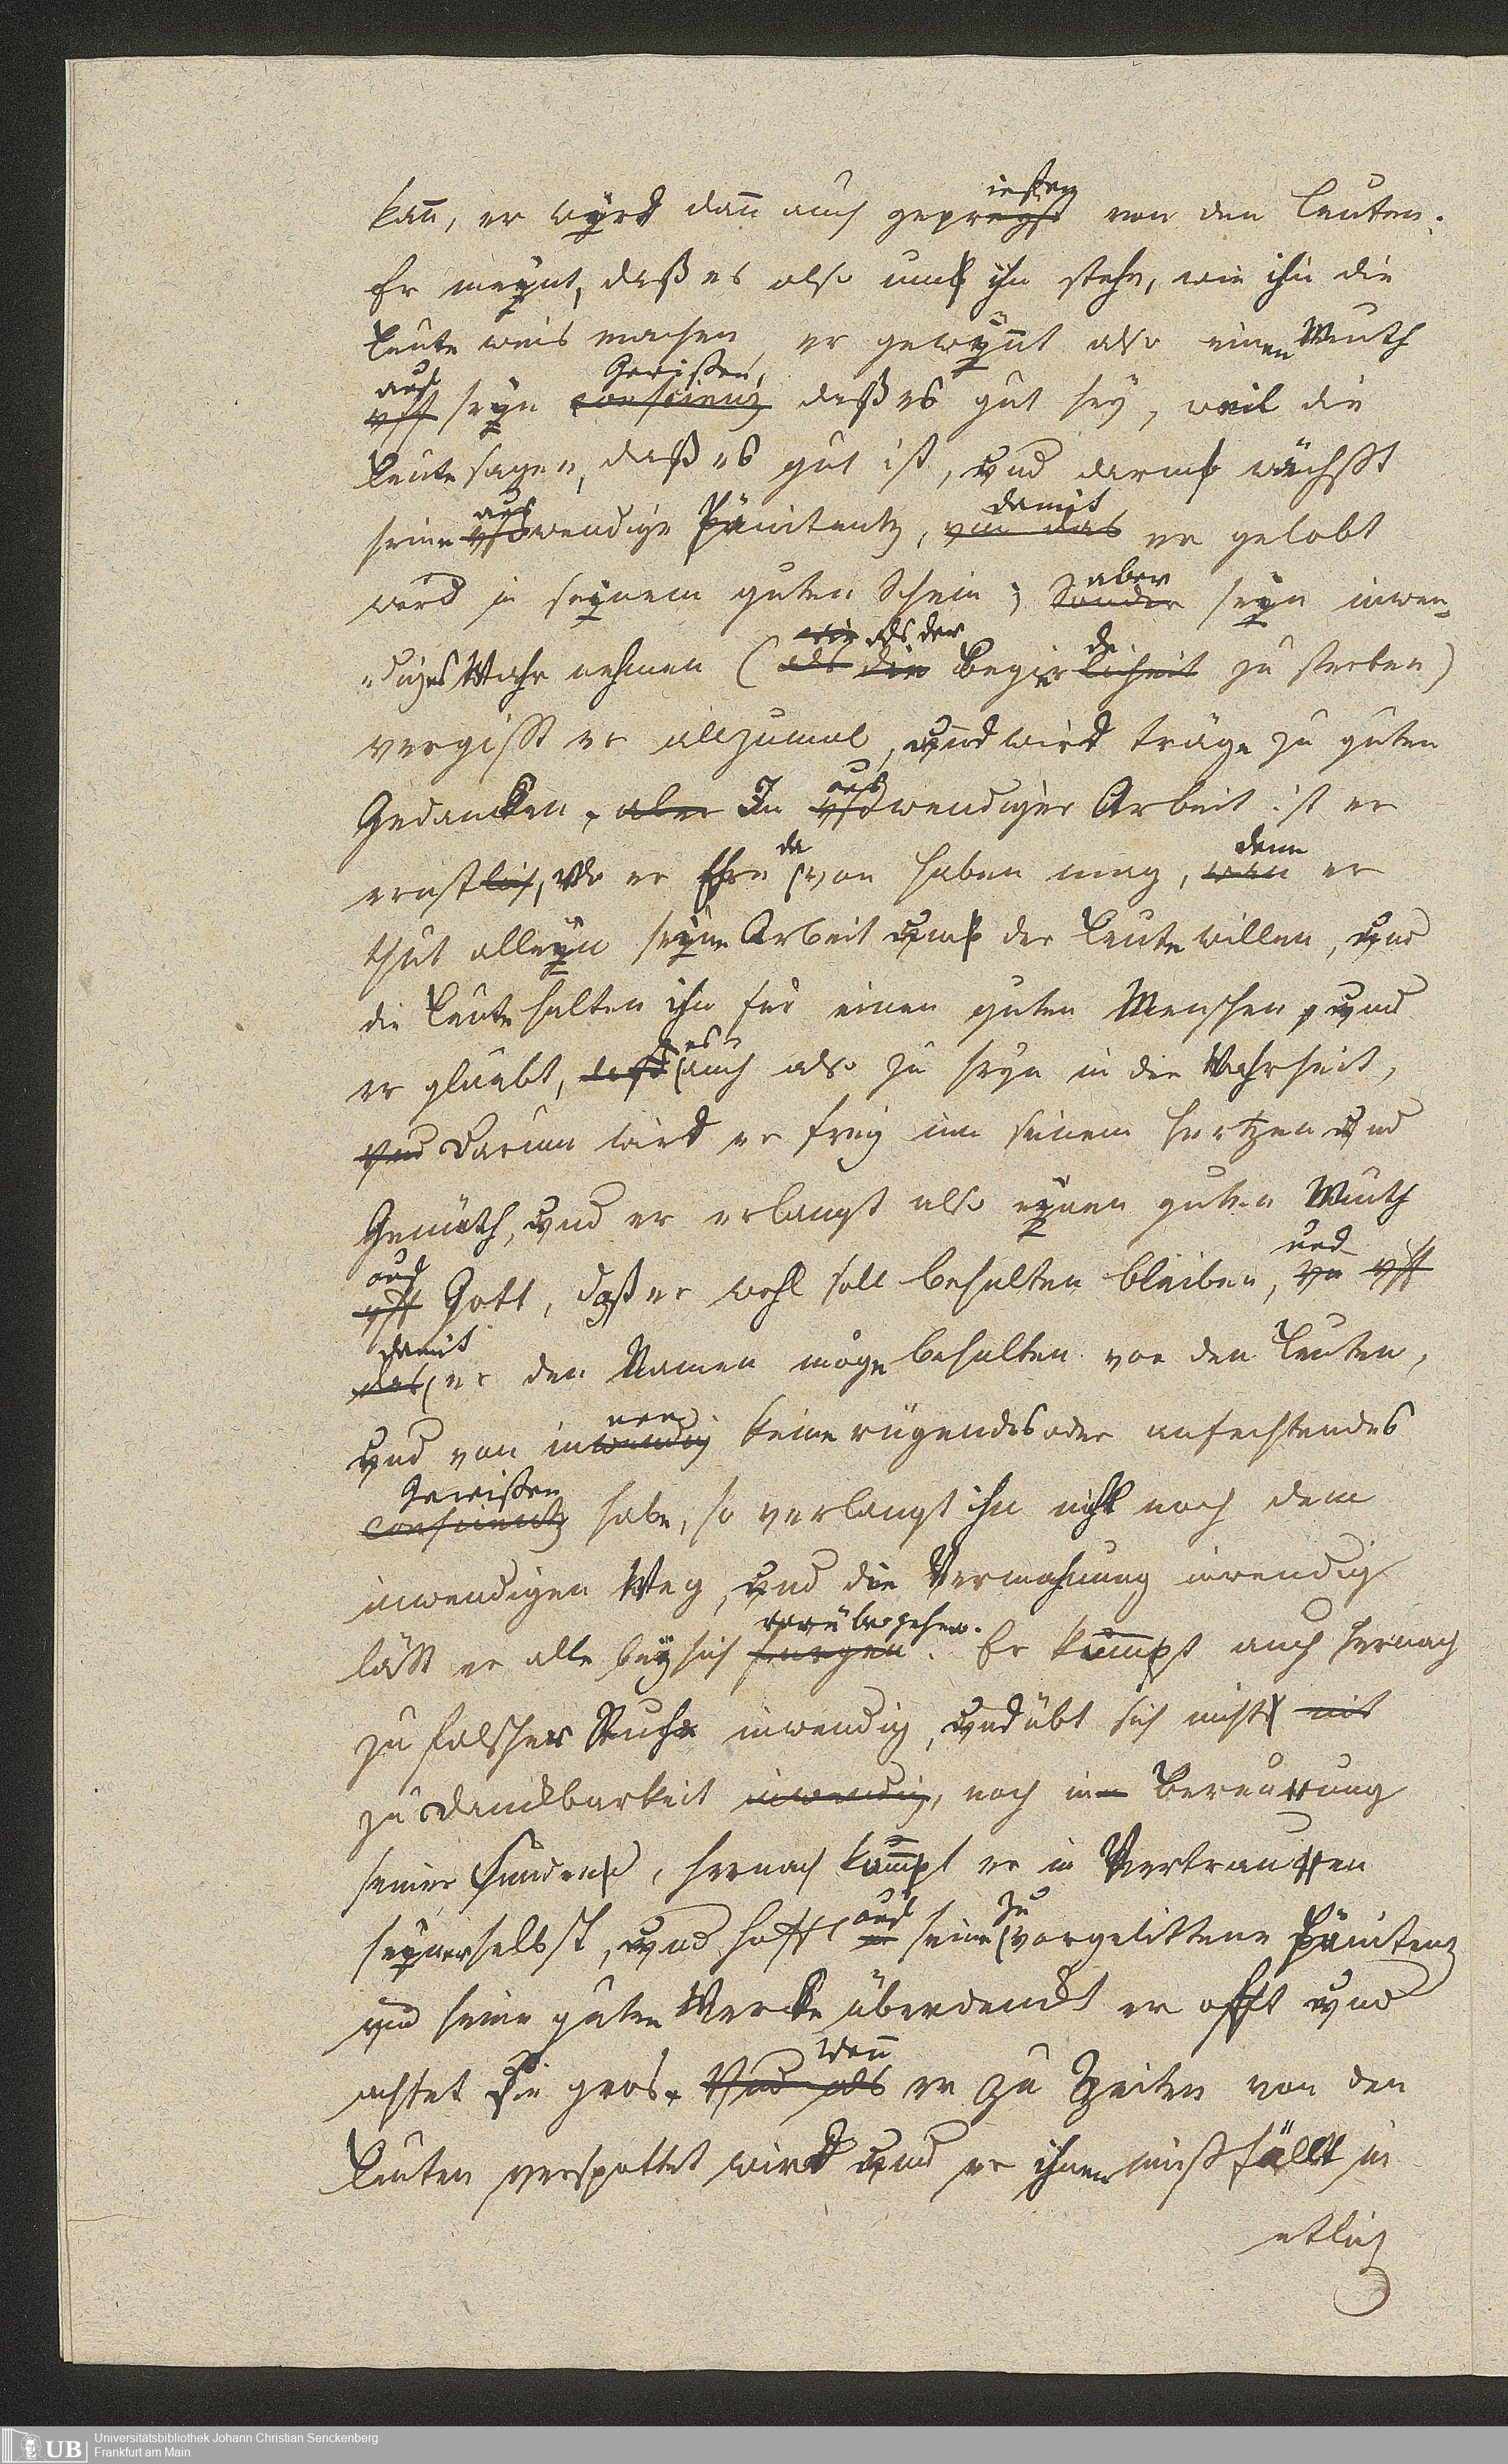 kan̄, er wyrd dan̄ auch gepriesen von den Leuten.
Er meynt, daß es also umb ihn stehe, wie ihn die
Leute weis machen, er gewÿn̄t also einen Muth
auf seyn Gewißen, daß es gut sey, weil die
Leute sagen, daß es gut ist, und darmb wächsst
seine auswendige Pänitentz, damit er gelobt
werd in seynem guten Schein; aber seyn inwen-
diges Wahrnehmen (als der Begierde zu sterben)
vergisst er allzumal, und wird träge zu guten
Gedancken. In auswendiger Arbeit ist er
ernst, wo er Ehre davon haben mag, denn er
thut alleyn seyne Arbeit umb der Leute willen, und
die Leute halten ihn für einen guten Menschen, und
er glaubt, es auch also zu seyn in der Wahrheit,
Darum wird er frey inn seinem Hertzen und
Gemüth, und er erlangt also eynen guten Muth
auf Gott, daß er wohl soll behalten bleiben, und
damit er den Namen möge behalten vor den Leuten,
und von innen keine rügendes oder anfechtendes
Gewißen habe, so verlangt ihn nicht nach dem
inwendigen Weg, und die Vermahnung inwendig
lässt er alle bey sich vorübergehen. Er kummpt auch hernach
zu falscher Ruhe inwendig, und übt sich nicht
zu Danckbarkeit, noch in Bereuung
seiner Sünden, hernach kommpt er in Vertrauen
seyner selbst, und hofft auf seine zuvorgelittene Pänitentz
und seine guten Wercke überdenckt er offt und
achtet sie gros. Wan̄ er zu Zeiten von den
Leuten verspottet wird und er ihnen mißfällt in
etlich
Universitätsbibliothek Johann Christian Senckenberg
Frankfurt am Main